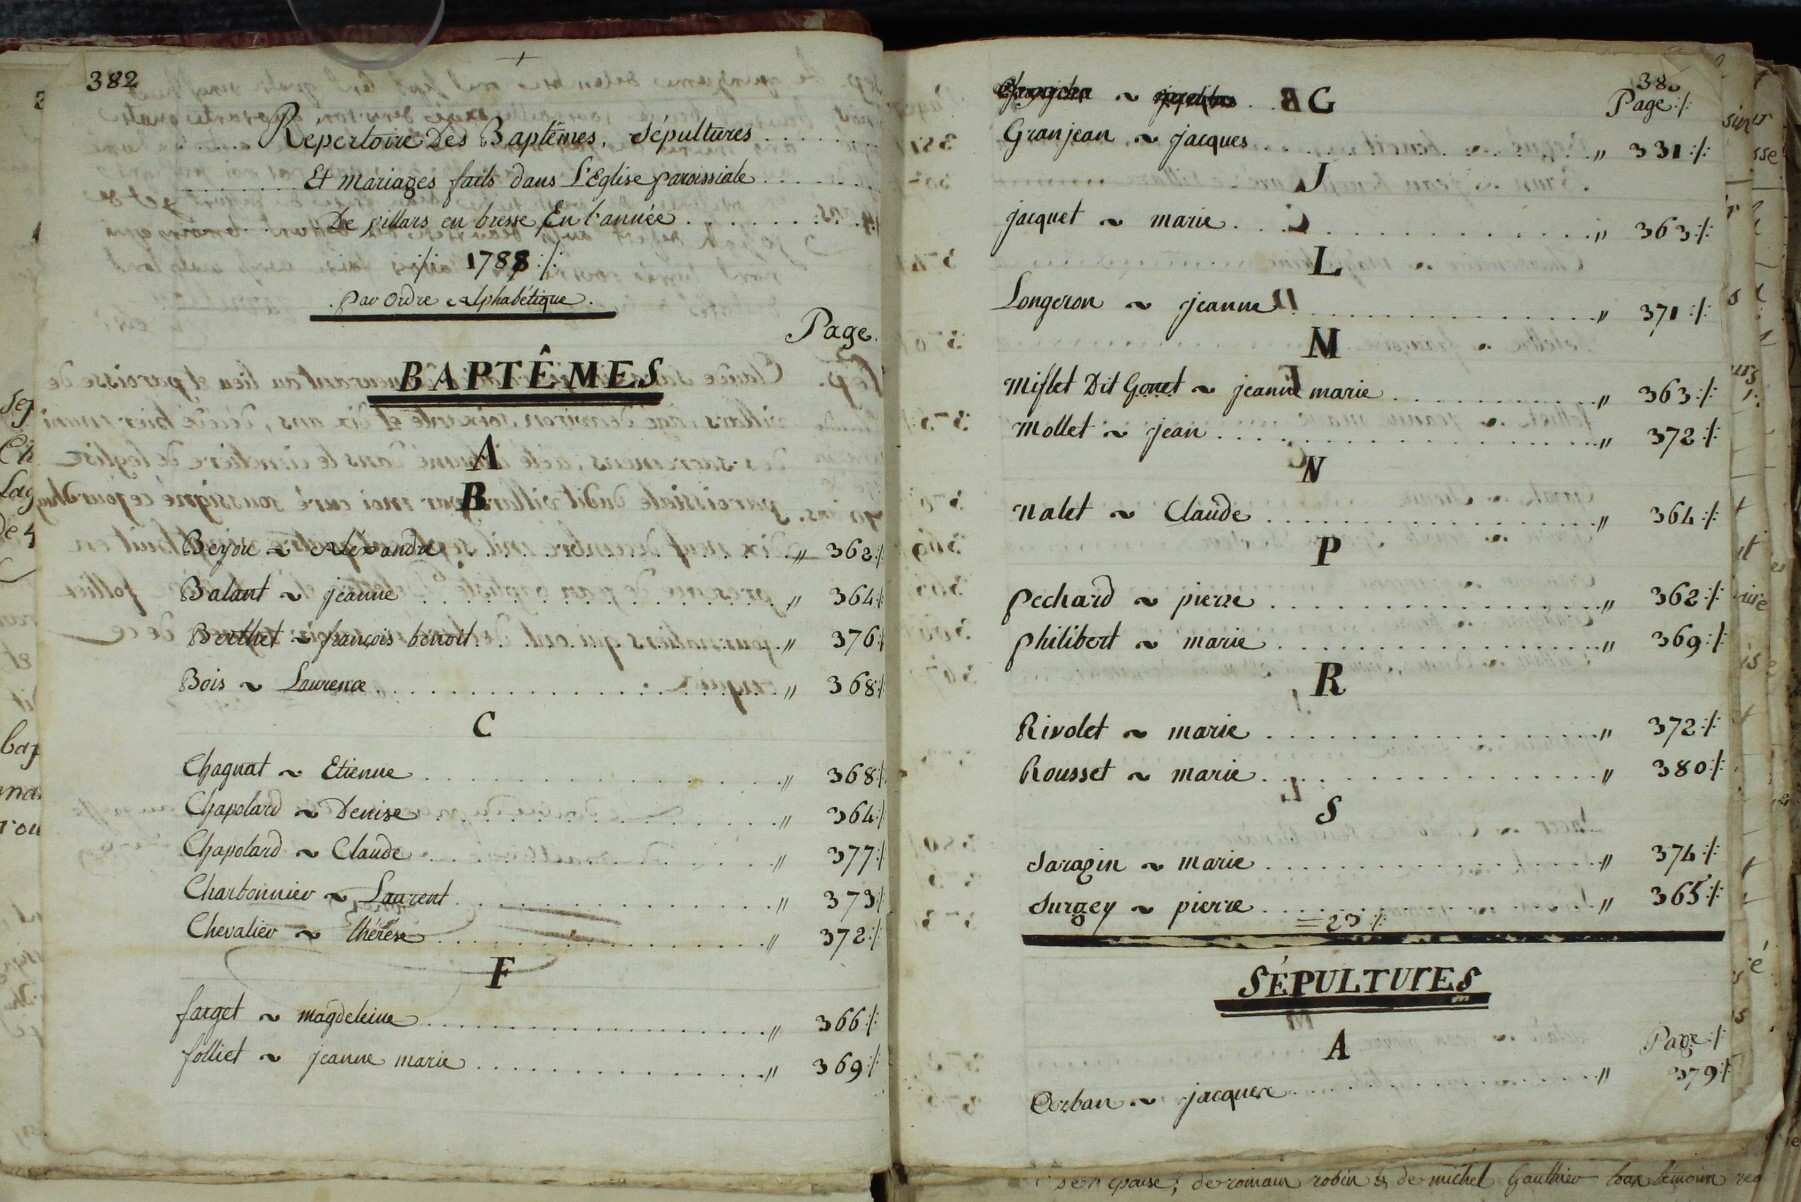 382
Repertoire Des Baptêmes, Sépultures
Et mariages faits dans L'Eglise paroissiale
De villars en bresse En l'année
1788
par Ordre alphabétique.
Page.
BAPTÊMES
A
B
Beyou ~ Alexandre " 362
Balant ~ jeanne " 364
Berthet ~ françois benoit " 376
Bois ~ Laurence " 368
C
Chagnat ~ Etienne " 368
Chapolard ~ Denise " 364
Chapolard ~ Claude " 377
Charbonnier ~ Laurent " 373
Chevalier ~ thérèse " 372
F
farget ~ magdeleine " 366
folliet ~ jeanne marie " 369
G
Page
Granjean ~ jacques " 331
J
jacquet ~ marie " 363
L
Longeron ~ jeanne " 371
M
Miflet Dit Gonet ~ jeanne marie " 363
Mollet ~ jean " 372
N
Nalet ~ Claude " 364
P
pechard ~ pierre " 362
philibert ~ marie " 369
R
Rivolet ~ marie " 372
Rousset ~ marie " 380
S
Saragin ~ marie " 374
Surgey ~ pierre " 365
= 23
SÉPULTUrES
A
Page
Orban ~ jacques " 379
de romain robin & de michel Gauthier